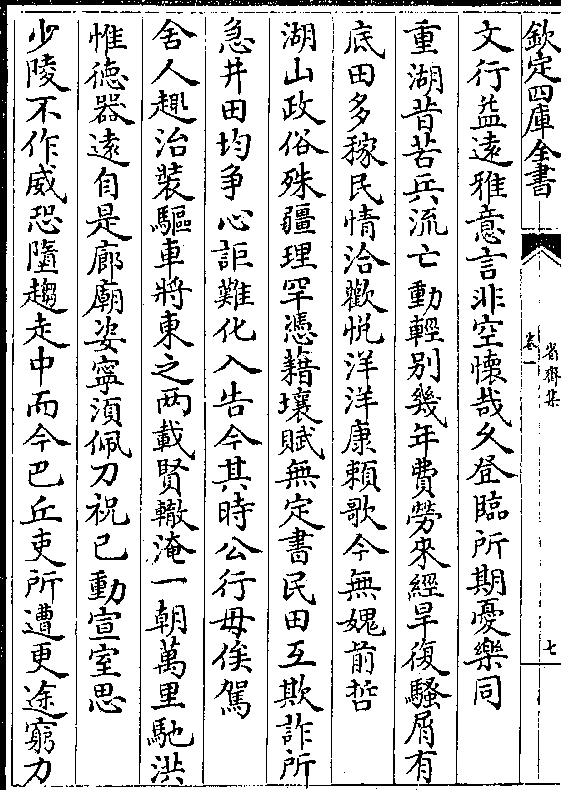 欽定四庫全書
省齋集
卷一
七
文行益遠雅意言非空懷哉久登臨所期憂樂同
重湖昔苦兵流亡動輕别幾年費勞來經旱復騷屑有
底田多稼民情洽歡悦洋洋康頼歌今無媿前哲
湖山政俗殊疆理罕憑藉壤賦無定書民田互欺詐所
急井田均爭心詎難化入告今其時公行毋俟駕
舍人趣治裝驅車將東之兩載賢轍淹一朝萬里馳洪
惟徳器遠自是廊廟姿寧須佩刀祝已動宣室思
少陵不作威恐墮趨走中而今巴丘吏所遭更途窮力